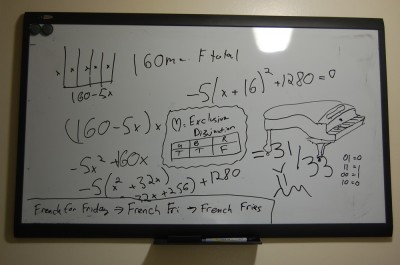 x x x x x
160-5x
160m = F total
-5(x+16)²+1280=0
(160-5x)x
= Exclusive
Disjunction
T T F
-5x²+160x
-5(x²+32x
+256)+1280
= 31/33
01=0
11=1
00=1
10=0
French for Friday → French Fri → French Fries